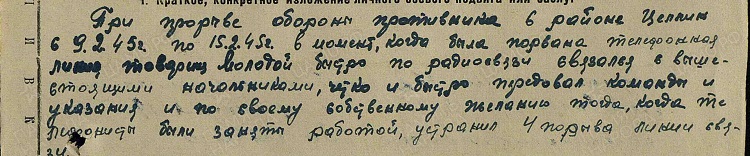 1. Краткое, конкретное изложение личного боевого подвига или заслуг
При прорыве обороны противника в районе Цеплин
с 9.2.45г. по 15.2.45г. в момент, когда была порвана телефонная
линия товарищ Молодой быстро по радиосвязи связался с выше-
стоящими начальниками, четко и быстро передовал команды и
указания и по своему собственному желанию тогда, когда те-
лефонисты были заняты работой, устранил 4 порыва линии свя-
зи.